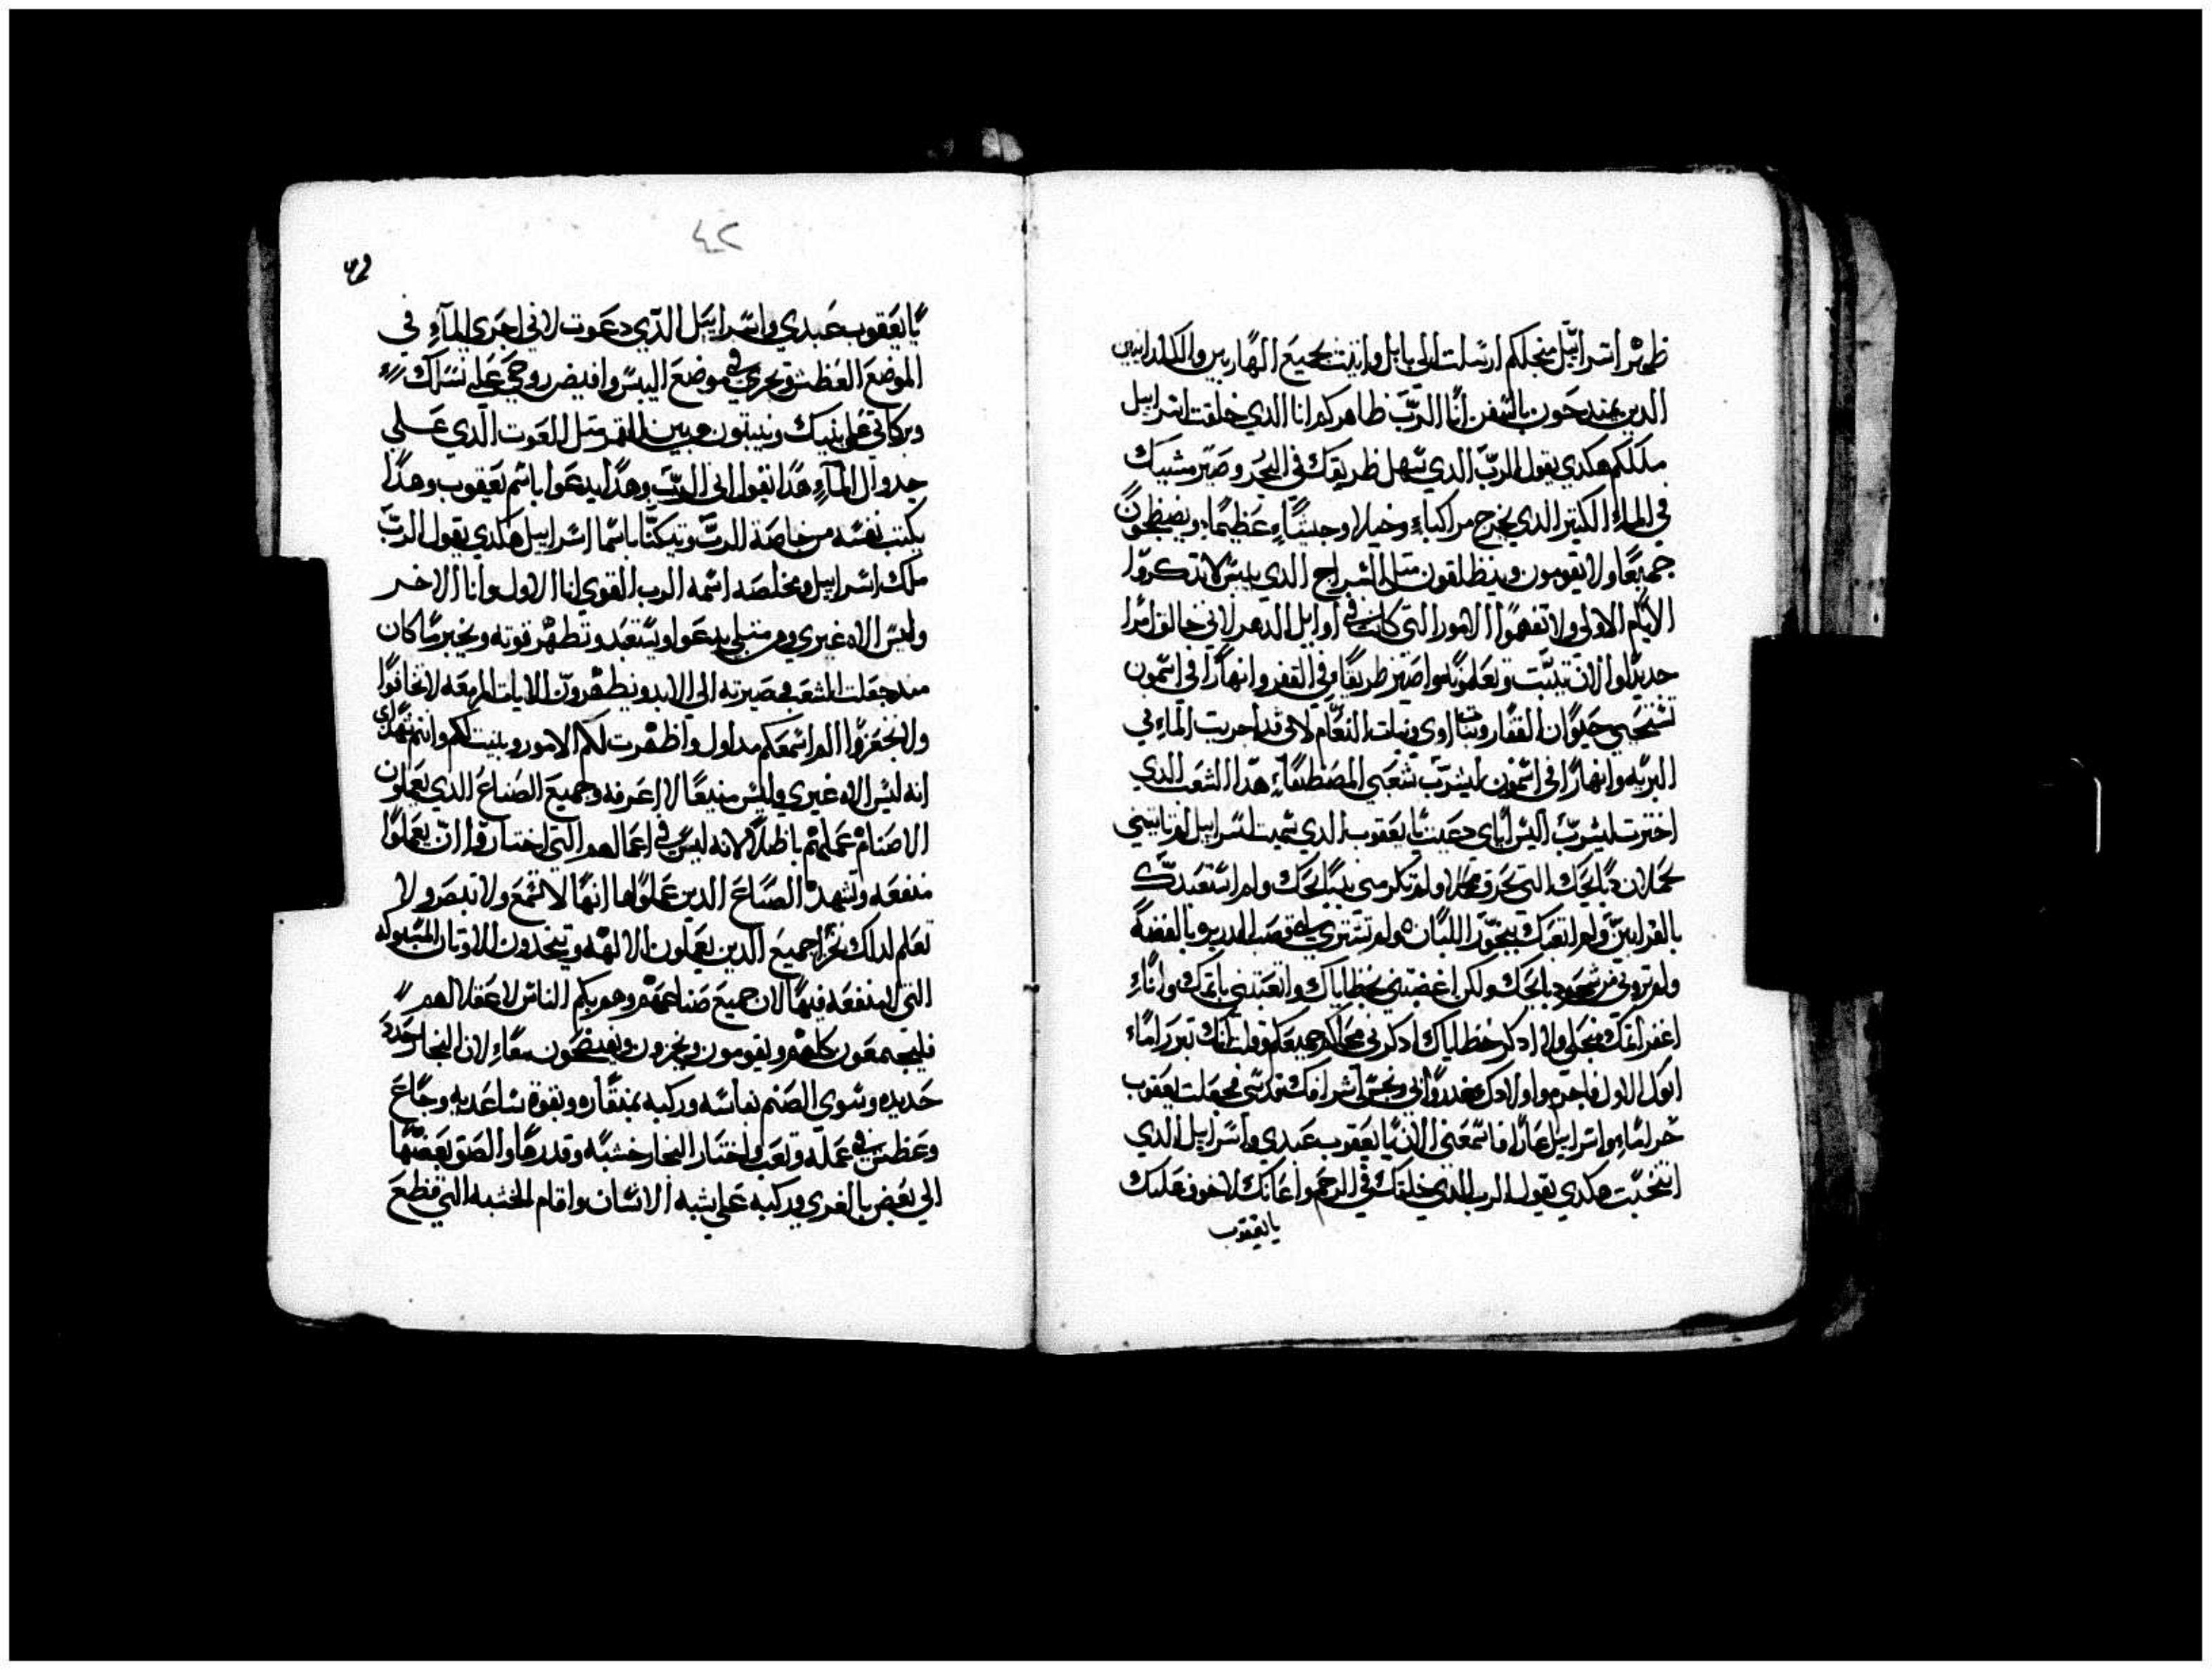 طهر اسراييل منجلكم ارسلت الى بابل واتيت بجميع الهاربين والكلدانيين
الدين يمتدحون بالسفن انا الربّ طاهركم انا الدي خلقت اسراييل
ملككم هكدي يقول الربّ الدي سهل طريقك في البحر وصيّر مشيك
في الماء الكتير الدي يخرج مراكباء وخيلا وجيشاء عظيمًا ويضبطون
جميعًا ولا يقومون وينطلقون متل السراج الدي يلبس لا تدكروا
الايام الاولى ولا تفهموا الامور التي كانت في اوايل الدهر لاني خالق امرا
حديدًا والان تبيّت وتعلمونه واصير طريقا في القفر وانهارًا في اسمون
تسبحني حيوان القفار وبنات اوى وبنات النعام لاني قد اجريت الماء في
البريه وانهارًا في اسمون ليشرب شعبي المصطفاء هدا الشعب الدي
اخترت ليشرب اليس اياي دعيت يا يعقوب الدي سميت اسراييل لم تاتيني
بحملان دبايحك التي تحرق ولم تكرمني بدبايحك ولم استعبدك
بالقرابين ولم اتعبك ببخور اللبان ولم تشتري لي قصب الدريره بالفضه
ولم تروني من شحوم دبايحك ولكن اغضبتني بخطاياك واتعبتني باتمك وانا
اغفر اتمك منجلي ولا ادكر خطاياك ادكرني نحاكم جميعًا وقلت انك تبرر اما
ابوك الاول فاجرم واولادك غدروا بي ونجس اشرافك قدسي فجعلت يعقوب
حراما واسراييل عارًا فاسمعني الان يا يعقوب عبدي واسراييل الدي
انتخبت هكدي يقول الرب الدي خلقك في الرحم واعانك لا خوف عليك
يا يعقوب
٤٢
يا يعقوب عبدي واسراييل الدي دعوت لاني اجري الماء في
الموضع العطش وتجري في موضع اليبس وافيض روحي على نسلك
وبركاتي على بنيك وينبتون من بين متل الغوت الدي على
جدوال الماء هدا يقول اني الرب وهدا يدعوا باسم يعقوب وهدا
يكتب نفسه من خاصة للرب ويتكنا باسم اسراييل هكدي يقول الرب
ملك اسراييل ومخلصه اسمه الرب القوي انا الاول وانا الاخر
وليس الاه غيري ومن متلي يدعوا ويستعد وتظهر قوته ويخبر ما كان
مند جعلت الشعب صيرته الى الابد ويظهرون الايات المزمعه لا تخافوا
ولا تجزعوا الم اسمعكم مند اول واظهرت لكم الامور وبينت لكم وانتم شهداي
انه ليس الاه غيري وليس منيعًا لا اعرفه وجميع الصناع الدي يعملون
الاصنام عملهم باطلا لانه ليس في اعمالهم التي اختاروا ان يعملوا
منفعه وتشهد الصناع الدين عملوها انها لا تسمع ولا تبصر ولا
تعلم لدلك نخزا جميع الدين يعملون الالهه ويتخدون الاوتان المسبوكه
التي لا منفعه فيها لان جميع صناعهم وهو بكم الناس لا عقل لهم
فليجتمعون كلهم ويقومون ويخزون ويفتضحون معاء لان النجار حدد
حديده وسوى الصنم بفاسه وركبه بمنقاره وبقوة ساعديه وجاع
وعطش في عمله وتعب واختار النجار خشبه وقدرها والصق بعضها
الي بعض بالغري وركبه على شبه الانسان واقام الخشبه التي قطع